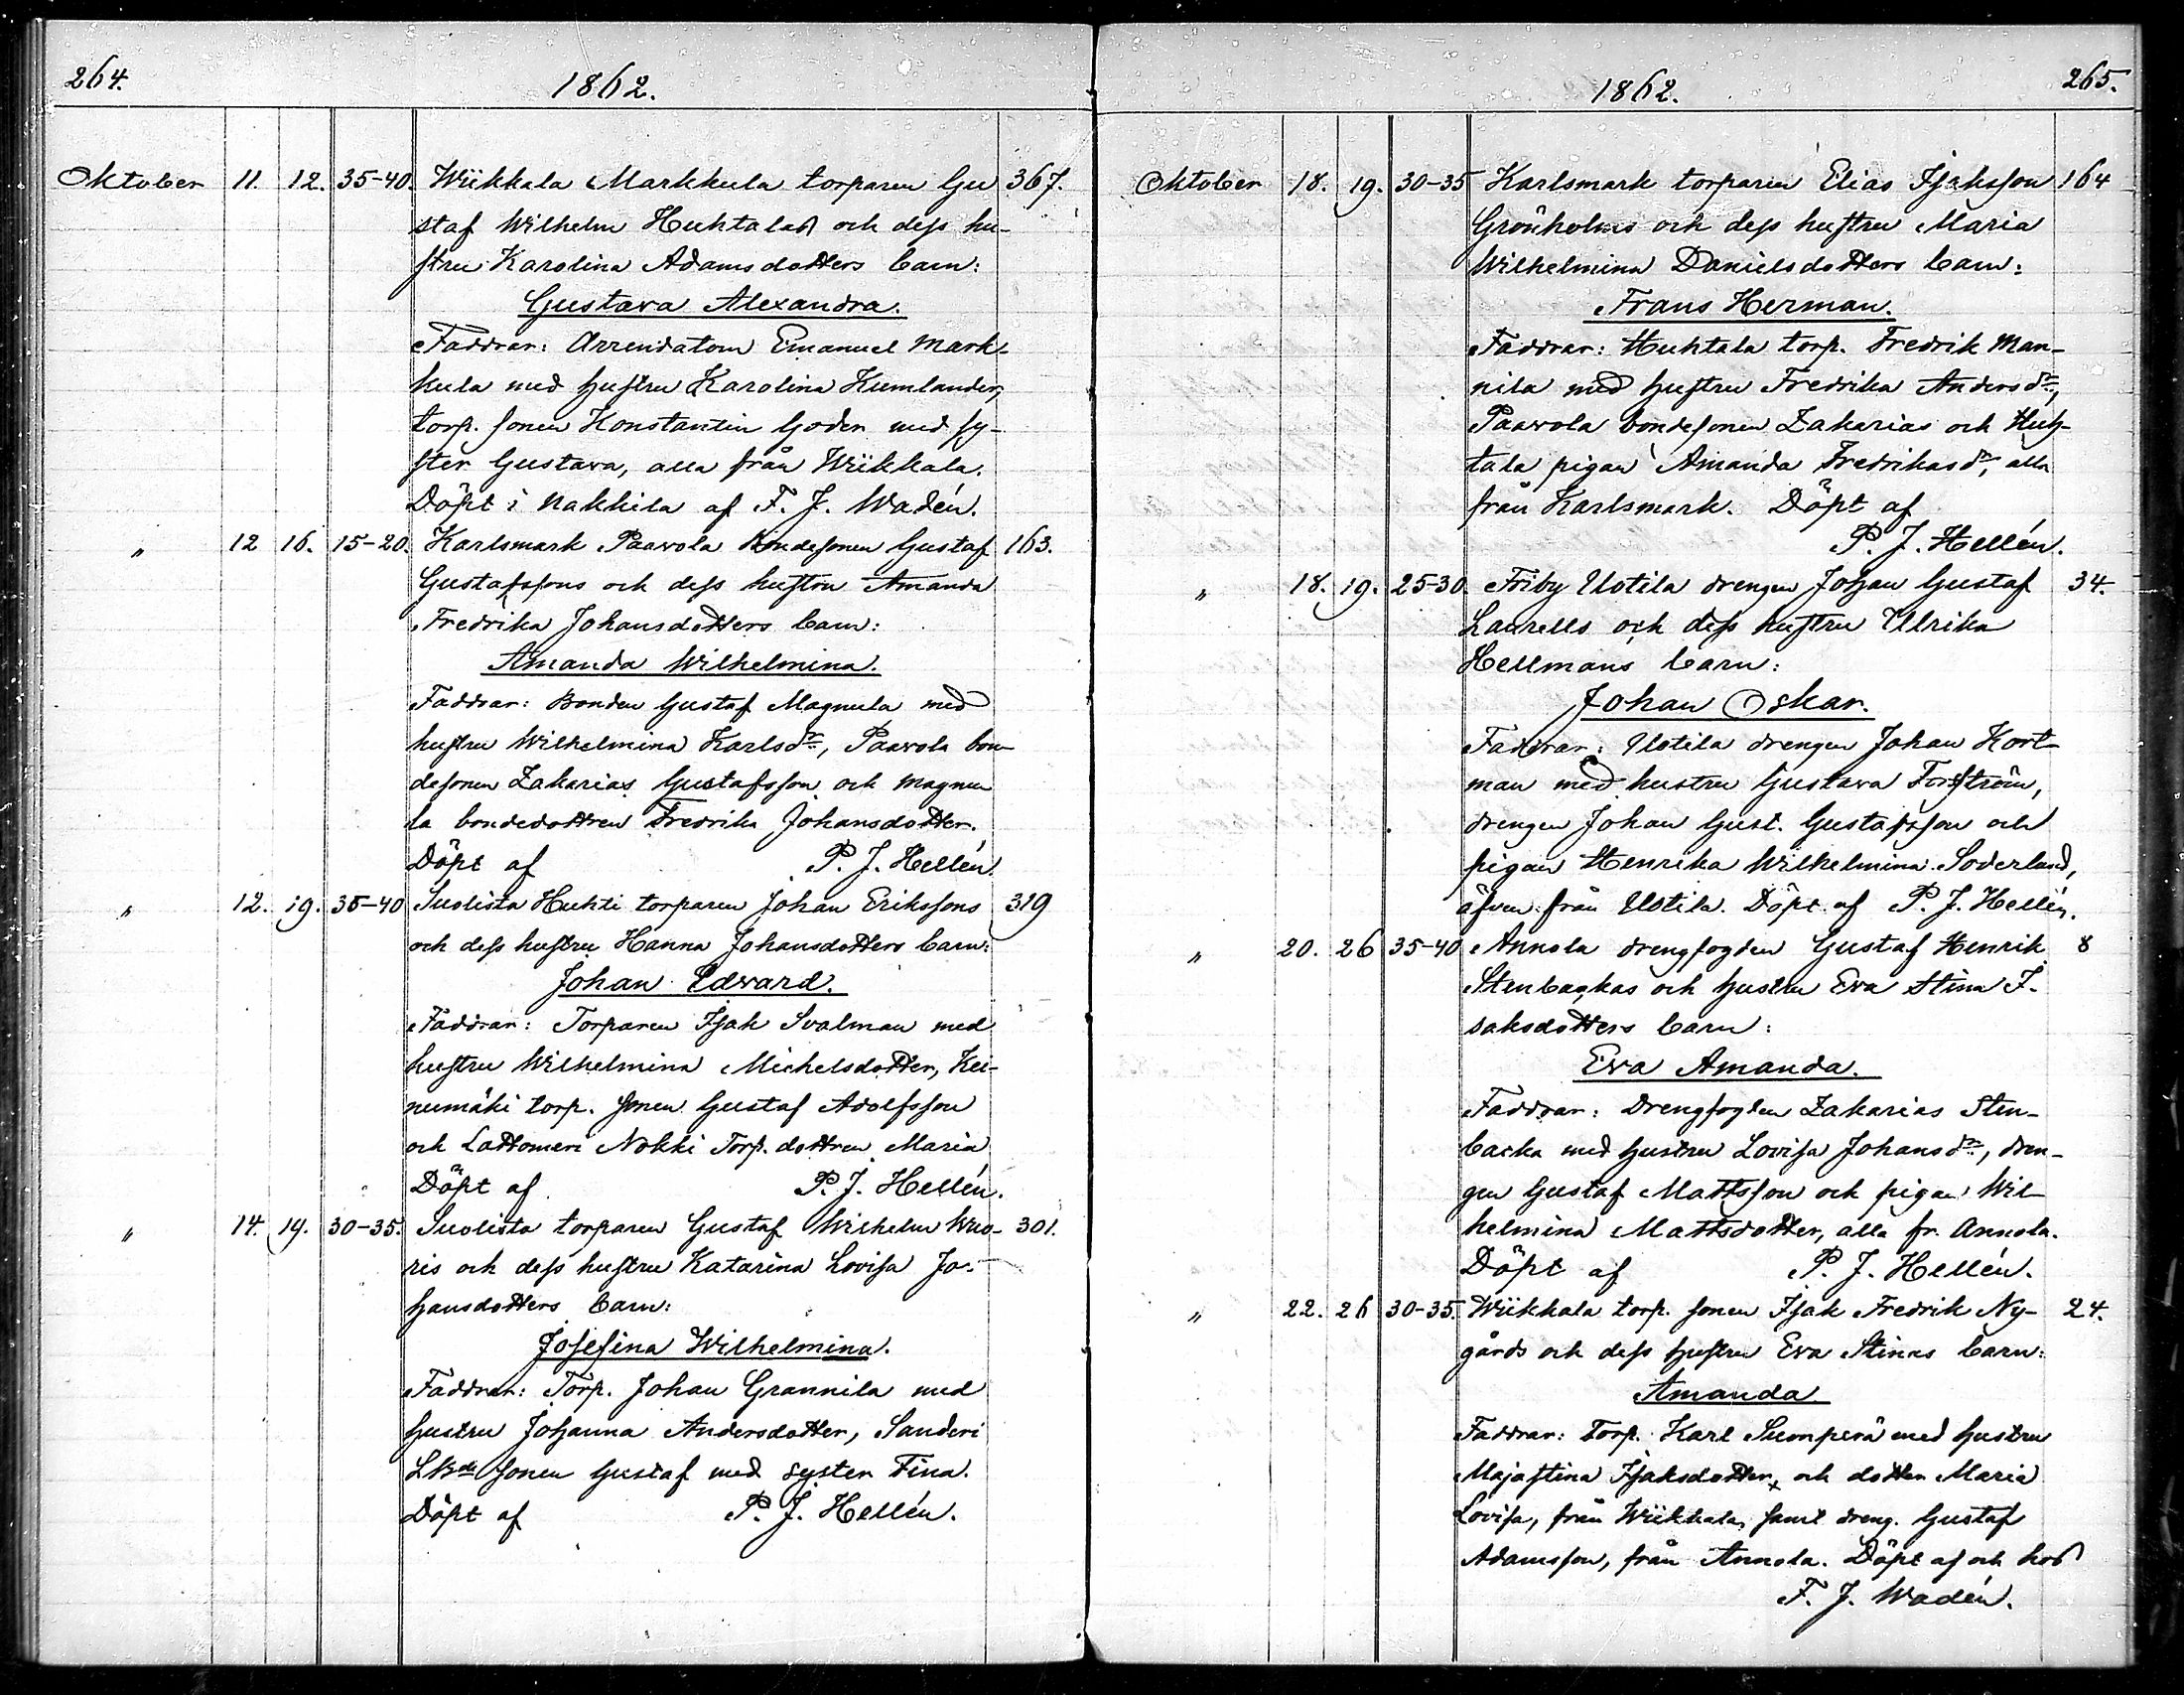 264.
1862.
Oktober 11. 12. 35-40. Wiikkala Markkula torparen Gu 367.
staf Wilhelm Huhtalas och dess hu-
stru Karolina Adamsdotters barn:
Gustava Alexandra.
Faddrar: Arrendatorn Emanuel Mark-
kula med hustru Karolina Kumlander,
torp. sonen Konstantin Goden med sy-
ster Gustava, alla från Wiikkala.
Döpt i Nakkila af F. J. Wadén.
" 12 16. 15-20. Karlsmark Paavola bondesonen Gustaf 163.
Gustafssons och dess hustru Amanda
Fredrika Johansdotters barn:
Amanda Wilhelmina.
Faddrar: Bonden Gustaf Magnula med
hustru Wilhelmina Karlsdr, Paavola bon-
desonen Zakarias Gustafsson och Magnu
la bondedottren Fredrika Johansdotter.
Döpt af P. J. Hellén.
" 12. 19. 35-40 Suolista Huhti torparen Johan Erikssons 319
och dess hustru Hanna Johansdotters barn:
Johan Edvard.
Faddrar: Torparen Isak Svalman med
hustru Wilhelmina Michelsdotter, Kei-
numäki torp. sonen Gustaf Adolfsson
och Lattomeri Nokki Torp. dottren Maria
Döpt af P. J. Hellén.
" 14. 19. 30-35. Suolista torparen Gustaf Wilhelm Wuo- 301.
ris och dess hustru Katarina Lovisa Jo-
hansdotters barn:
Josefina Wilhelmina.
Faddrar: Torp. Johan Grannila med
hustru Johanna Andersdotter, Sanderi
sonen Gustaf med syster Fina.
Döpt af P. J. Hellén.
1862.
265.
Oktober 18. 19. 30-35 Karlsmark torparen Elias Isaksson 164
Grönholms och dess hustru Maria
Wilhelmina Danielsdotters barn:
Frans Herman.
Faddrar: Huhtala torp. Fredrik Man-
nila med hustru Fredrika Andersdr,
Paavola bondesonen Zakarias och Huh-
tala pigan Amanda Fredriksdr, alla
från Karlsmark. Döpt af
P. J. Hellén.
" 18. 19. 25-30. Friby Uotila drengen Johan Gustaf 34.
Laurells och dess hustru Ulrika
Hellmans barn:
Johan Oskar.
Faddrar: Uotila drengen Johan Kort-
man med hustru Gustava Forsström,
drengen Johan Gust. Gustafsson och
pigan Henrika Wilhelmina Soderlund,
äfven från Uotila. Döpt af P. J. Hellén.
" 20. 26 35-40 Annola drengfogden Gustaf Henrik 8
Stenbackas och hustru Eva Stina I-
saksdotters barn:
Eva Amanda.
Faddrar: Drengfogden Zakarias Sten-
backa med hustru Lovisa Johansdr, dren-
gen Gustaf Mattsson och pigan Wil-
helmina Mattsdotter, alla fr. Annola.
Döpt af P. J. Hellén.
" 22. 26 30-35. Wiikkala torp. sonen Isak Fredrik Ny- 24.
gårds och dess hustru Eva Stinas barn:
Amanda
Faddrar: Torp. Karl Sumperä med hustru
Majastina Isaksdotter, och dotter Maria
Lovisa, från Wiikkala, samt dreng. Gustaf
Adamsson, från Annola. Döpt af och hos
F. J. Wadén.